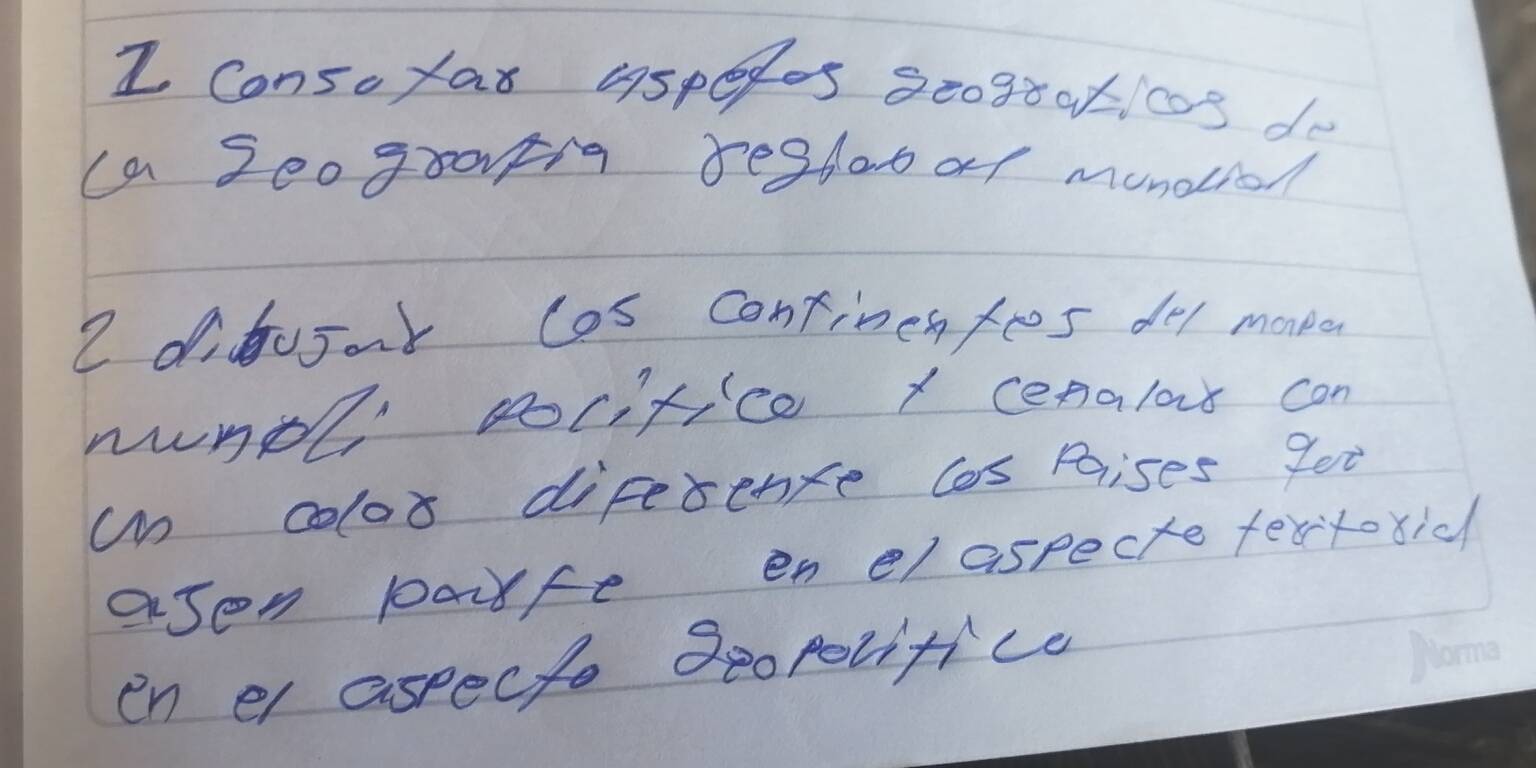 1 Consotar aspetos geograficos de
la geografia regional mundial
2 dibujar los continentes del mapa
mundi político y cenalar con
un color diferente los Paises que
asen parte en el aspecto teritorial
en el aspecto geopolitico
Norma